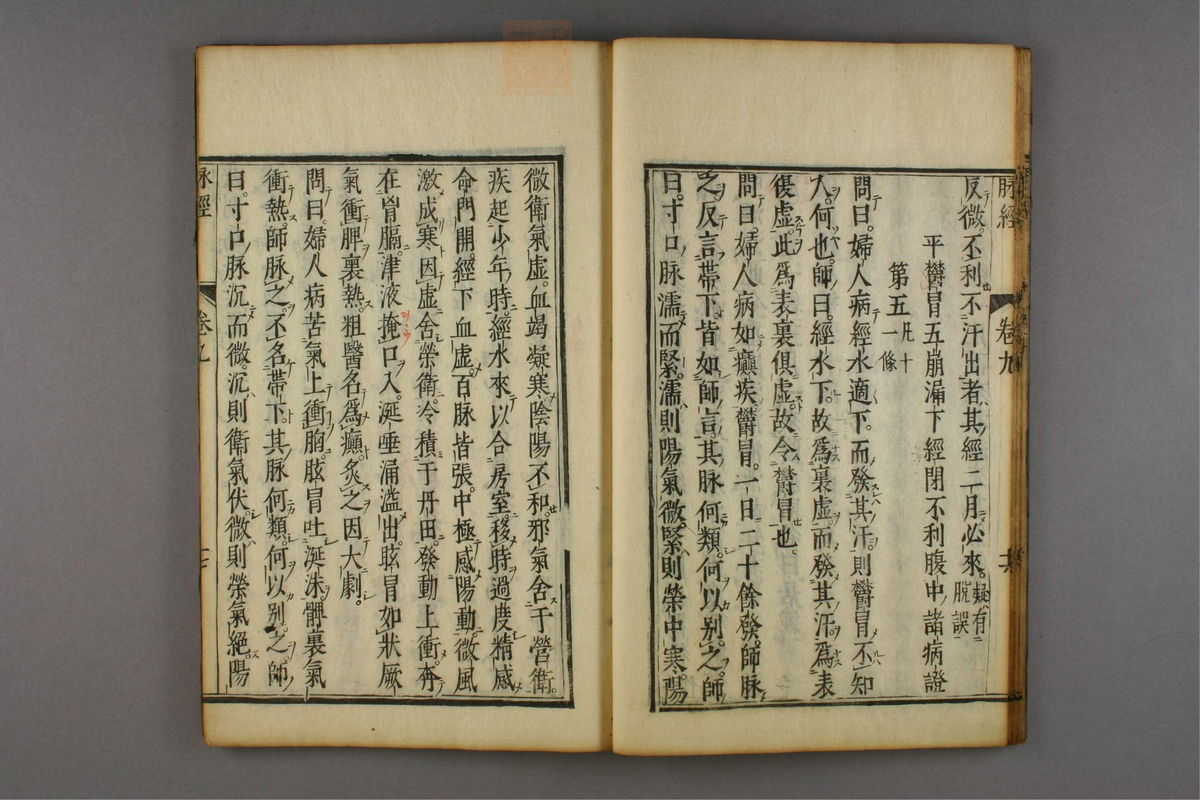 脉經 卷九
反微。不利不汗出者、其經二月必來。疑有脫誤
平欝冒五崩漏下經閉不利腹中諸病證
第五凡十一條
問曰。婦人病經水適下。而發其汗。則欝冒不知
人。何也。師曰。經水下。故爲裏虛。而發其汗。爲表
復虛。此爲表裏俱虛。故令欝冒也。
問曰。婦人病如癲疾欝冒。一日二十餘發。師脉
之。反言帶下。皆如師言。其脉何類。何以別之。師
曰。寸口脉濡而緊。濡則陽氣微。緊則榮中寒。陽
微衛氣虛。血竭凝寒陰陽不和。邪氣舍于營衛。
疾起少年時。經水來以合房室。移時過度精感
命門開。經下血虛。百脉皆張。中極感陽動。微風
激成寒。因虛舍榮衛。冷積于丹田。發動上衝。奔
在胷膈。津液掩口入。涎唾涌溢出。眩冒如狀厥
氣衝脾裏熱。粗醫名爲癲。灸之因大劇。
問曰。婦人病苦氣上衝胷。眩冒吐涎沫。髀裏氣
衝熱。師脉之。不名帶下。其脉何類。何以別之。師
曰。寸口脉沉而微。沉則衛氣伏。微則榮氣絕陽
脉經 卷九